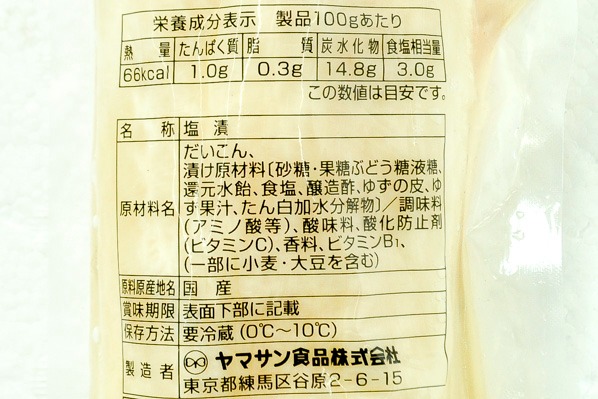 栄養成分表示 製品100gあたり
熱量 たんぱく質 脂質 炭水化物 食塩相当量
66kcal 1.0g 0.3g 14.8g 3.0g
この数値は目安です。
名称 塩漬
原材料名 だいこん、
漬け原材料〔砂糖・果糖ぶどう糖液糖、
還元水飴、食塩、醸造酢、ゆずの皮、ゆ
ず果汁、たん白加水分解物〕／調味料
(アミノ酸等)、酸味料、酸化防止剤
(ビタミンC)、香料、ビタミンB₁、
(一部に小麦・大豆を含む)
原料原産地名 国産
賞味期限 表面下部に記載
保存方法 要冷蔵(0℃〜10℃)
製造者 ヤマサン食品株式会社
東京都練馬区谷原2-6-15